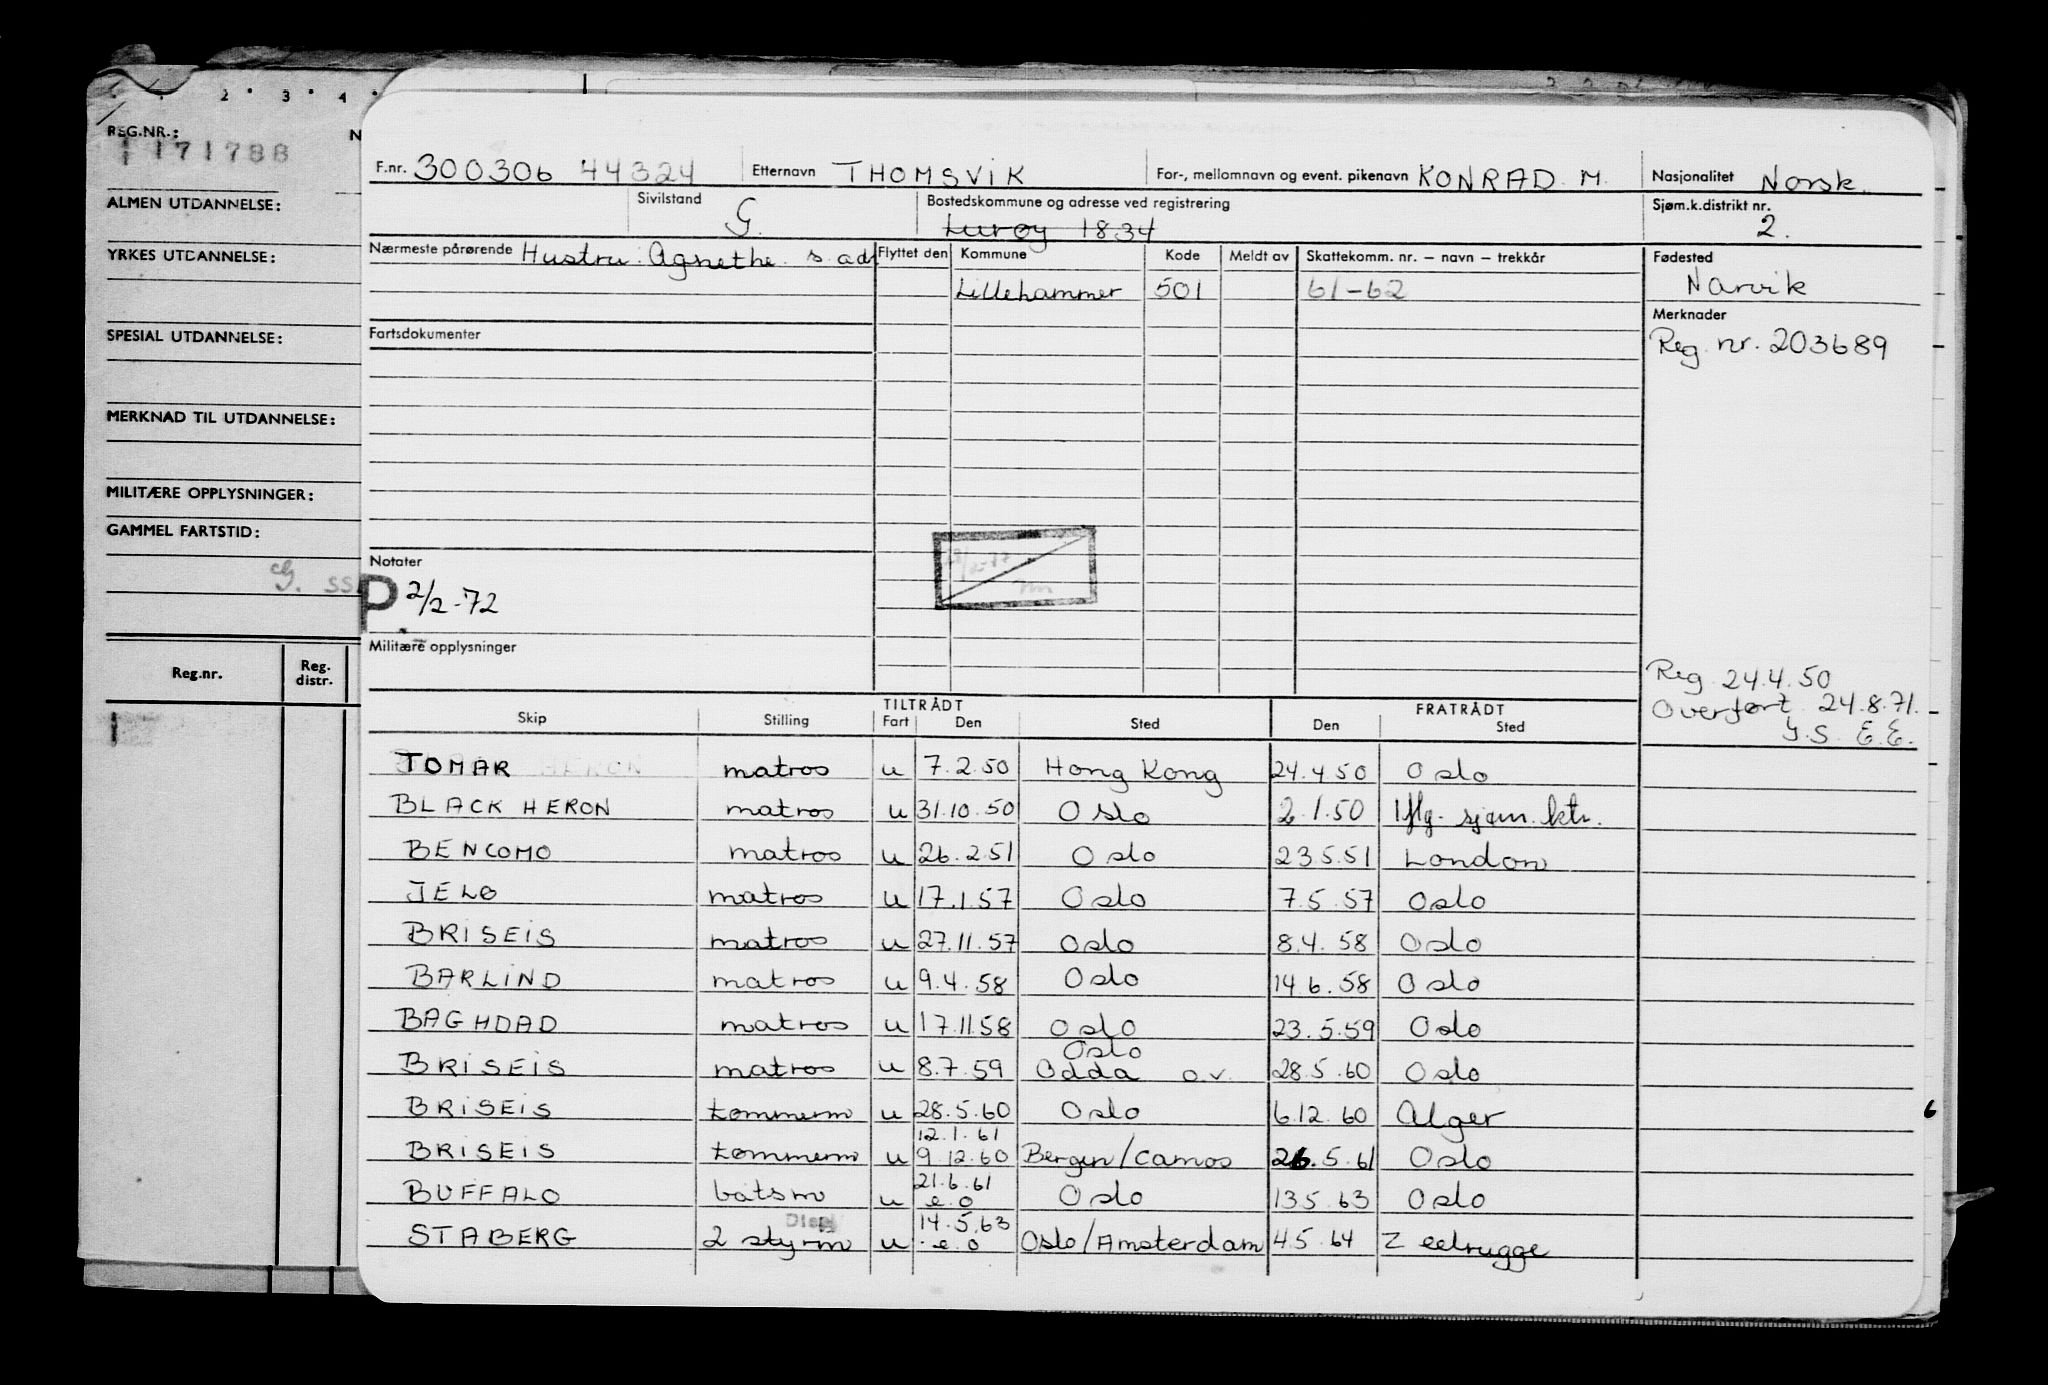 2 3 4
REG.NR.: N
171788
ALMEN UTDANNELSE:
YRKES UTDANNELSE:
SPESIAL UTDANNELSE:
MERKNAD TIL UTDANNELSE:
MILITÆRE OPPLYSNINGER:
GAMMEL FARTSTID:
G. SS
Reg.nr. Reg. distr.
F.nr. 300306 44324 Etternavn THOMSVIK For-, mellomnavn og event. pikenavn KONRAD M. Nasjonalitet Norsk.
Sivilstand G. Bostedskommune og adresse ved registrering Lurøy 1834 Sjøm.k.distrikt nr. 2.
Nærmeste pårørende Hustru: Agnethe s.adr Flyttet den Kommune Kode Meldt av Skattekomm. nr. – navn – trekkår Fødested
Lillehammer 501 61-62 Narvik
Merknader
Fartsdokumenter Reg. nr. 203689
Notater
P. 2/2-72
Militære opplysninger
Reg. 24.4.50
Overført 24.8.71.
Y.S. E.E.
TILTRÅDT FRATRÅDT
Skip Stilling Fart Den Sted Den Sted
TOMAR matros u 7.2.50 Hong Kong 24.4.50 Oslo
BLACK HERON matros u 31.10.50 Oslo 2.1.50 Iflg. sjøm.ktr.
BENCOMO matros u 26.2.51 Oslo 23.5.51 London
JELØ matros u 17.1.57 Oslo 7.5.57 Oslo
BRISEIS matros u 27.11.57 Oslo 8.4.58 Oslo
BARLIND matros u 9.4.58 Oslo 14.6.58 Oslo
BAGHDAD matros u 17.11.58 Oslo 23.5.59 Oslo
Oslo
BRISEIS matros u 8.7.59 Odda o.v. 28.5.60 Oslo
BRISEIS tømmerm u 28.5.60 Oslo 6.12.60 Alger
12.1.61
BRISEIS tømmerm u 9.12.60 Bergen/Camos 26.5.61 Oslo
21.6.61
BUFFALO båtsm u e.o Oslo 13.5.63 Oslo
Disp 14.5.63
STABERG 2 styrm u e.o Oslo/Amsterdam 4.5.64 Zeebrugge
6